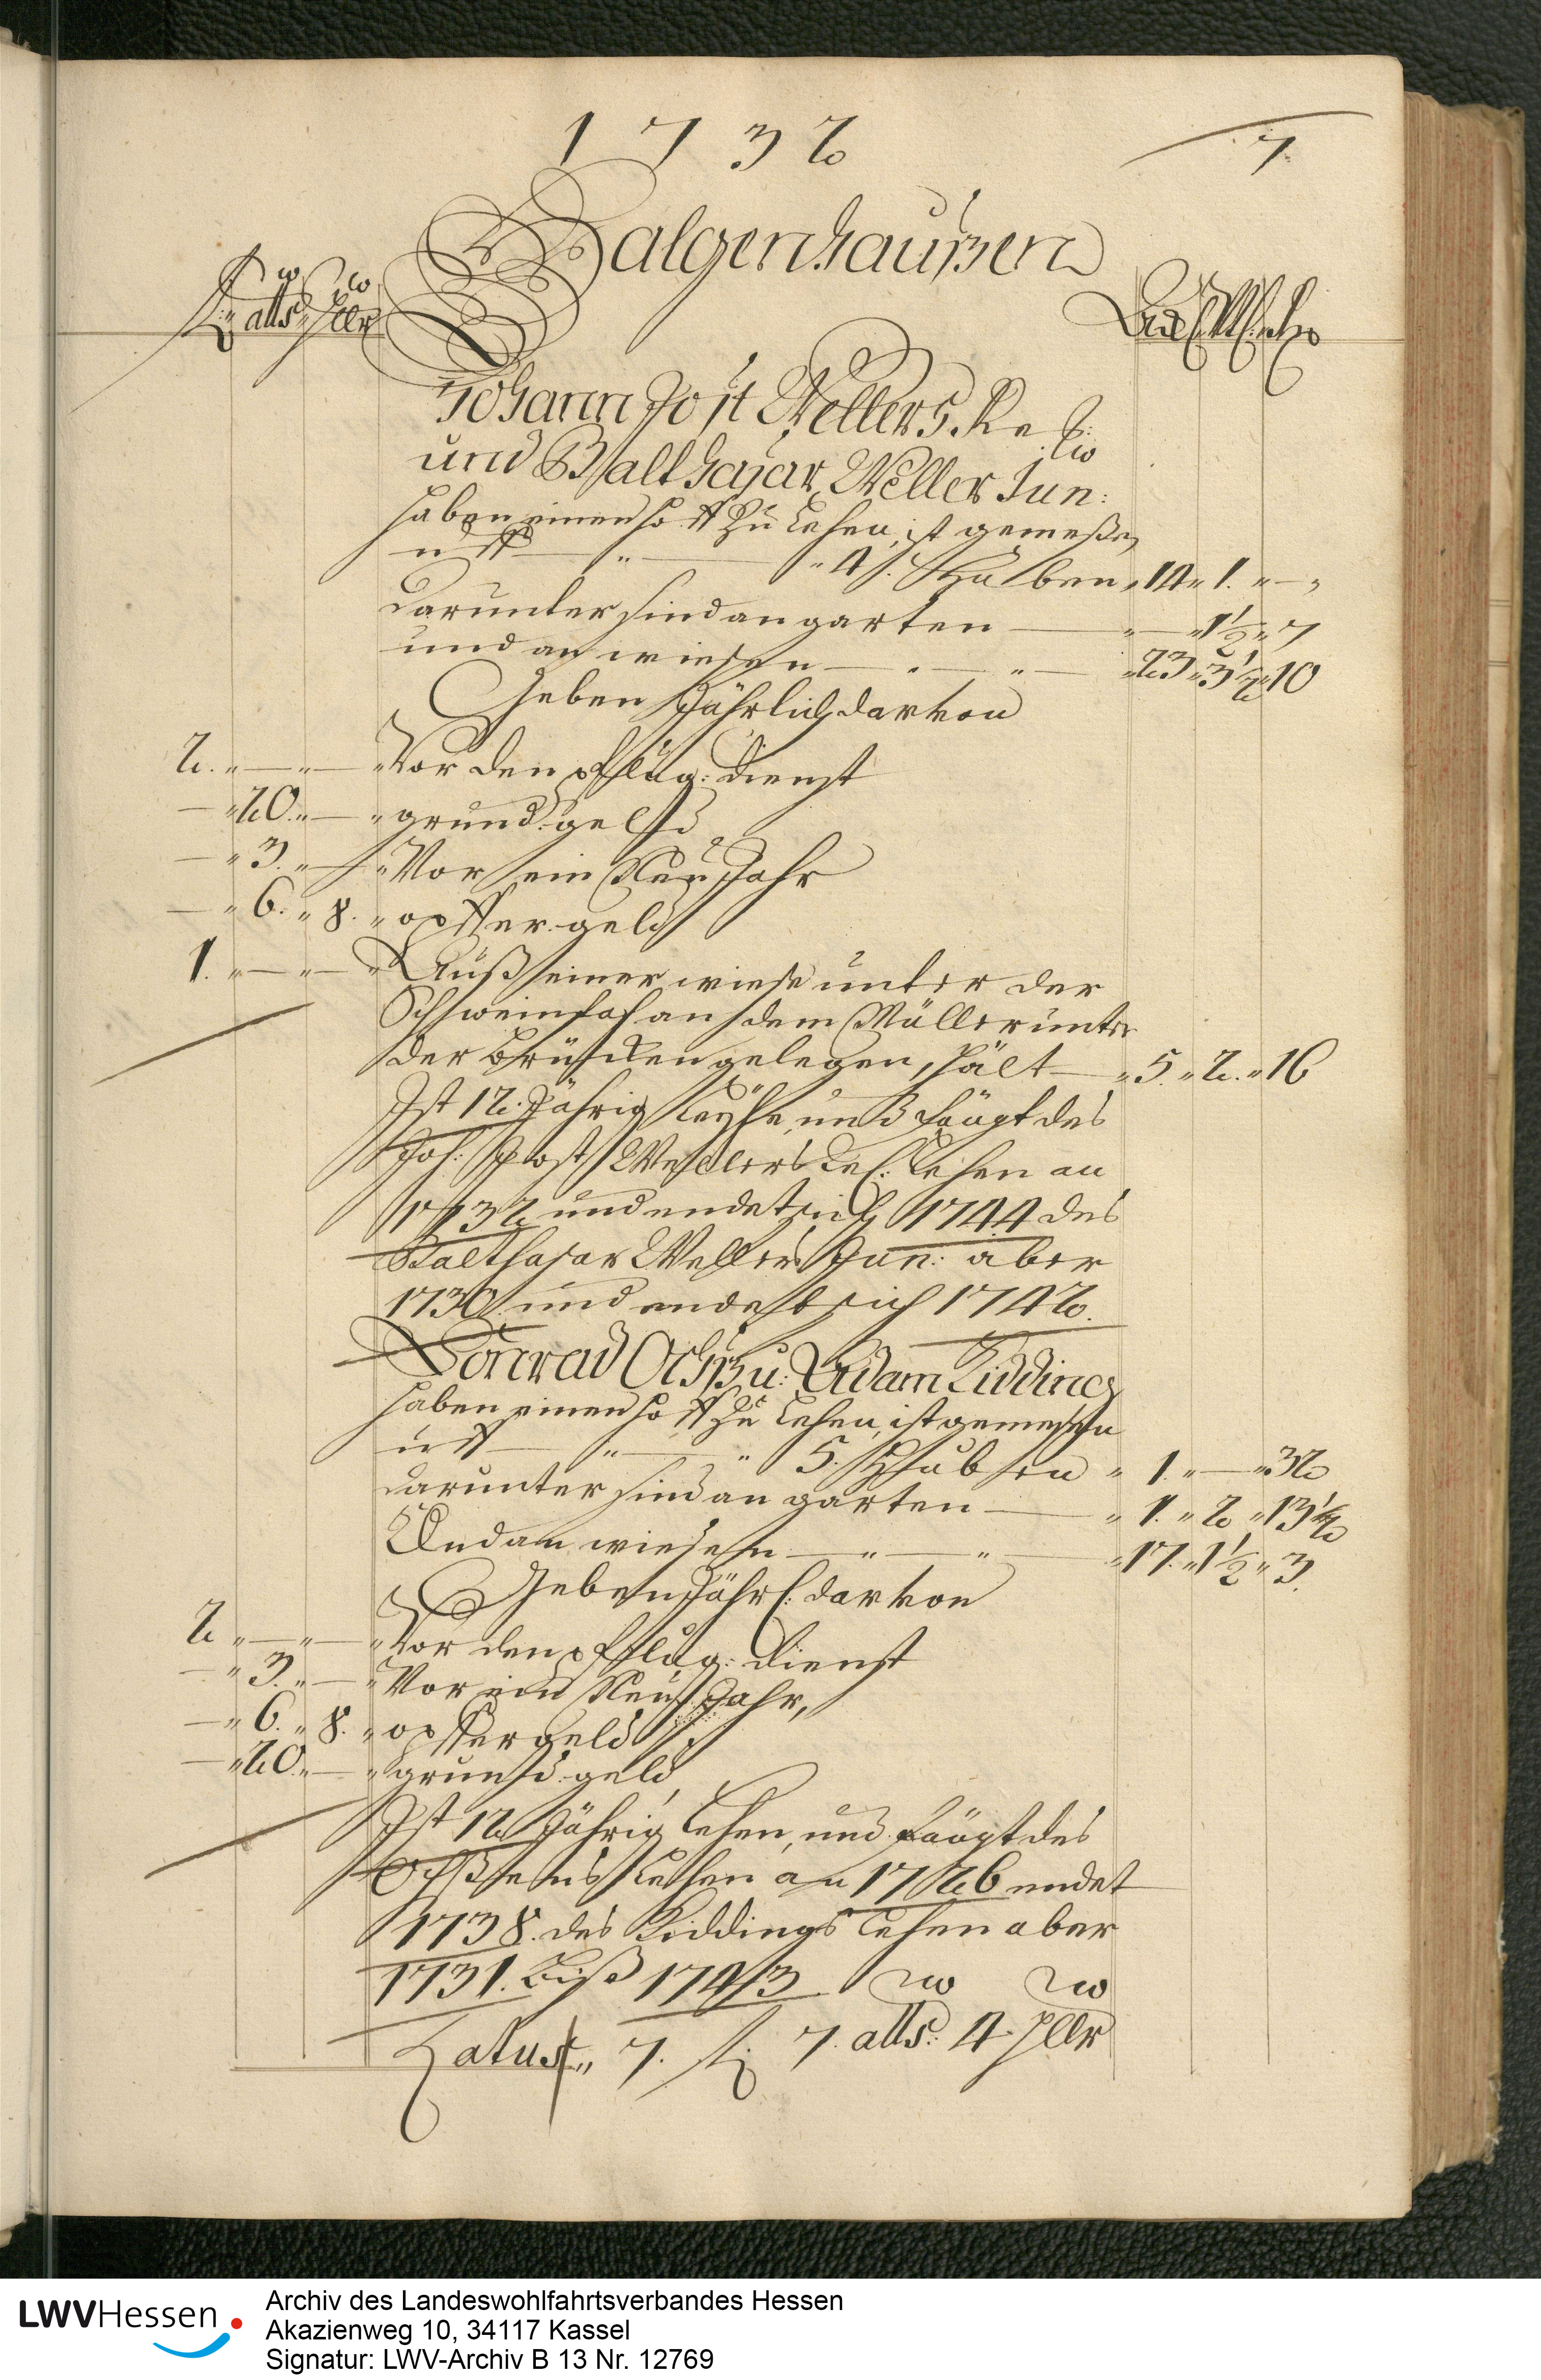 1732
7.
Balgenhaußen
fl: albs Hllr
Acker Vtl: Rth
Johann Jost Wellers Rel:
und Balthasar Weller Jun:
haben einen hoff zu Lehen, ist gemeßen
uff — " — " 4. Huben " 14 " 1. " — "
darunter sind an garten — " — " 1 1/2 " 7
und an wiesen — " — " 23 " 3 1/2 " 10
Geben Jährlich darvon
2. " — " — " Vor den pflug: dienst
— " 20. " — " grund: geld
— " 3. " — " Vor ein Neu Jahr
— " 6. " 8. " opffer: geld
1. " — " — " Auß einer wiese unter der
Schweinhof an dem Müller unter
der brücken gelegen, hält — " 5. " 2. " 16
Ist 12. Jährig Leyhe, und fängt des
Joh: Jost Wellers Rel: Lehen an
1732 und endet sich 1744 des
Balthasar Wellers Jun: aber
1730 und endet sich 1742.
Conrad Ochß u: Adam Kidding
haben einen hoff zu Lehen, ist gemeßen
uff — " — " 5. Huben " 1. " — " 32
darunter sind an garten — " 1. " 2 " 13 1/2
Und an wiesen — " — " — " 17. " 1 1/2 " 3.
Geben Jährl: darvon
2 " — " — " Vor den pflug: dienst
— " 3. " — " Vor ein Neu Jahr,
— " 6. " 8. " opffer geld
— " 20. " — " grund: geld
Ist 12 Jährig Lehen, und fängt des
Ochßens Lehen an 1726 endet
1738. des Kiddings Lehen aber
1731. biß 1743
Latus " 7. fl: 7. albs: 4 Hllr
LWVHessen
Archiv des Landeswohlfahrtsverbandes Hessen
Akazienweg 10, 34117 Kassel
Signatur: LWV-Archiv B 13 Nr. 12769